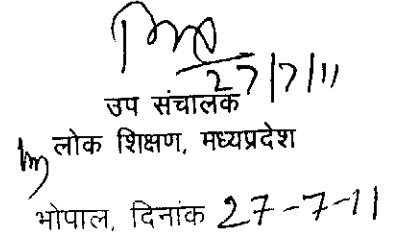 27/7/11
उप संचालक
लोक शिक्षण, मध्यप्रदेश
भोपाल, दिनांक 27-7-11